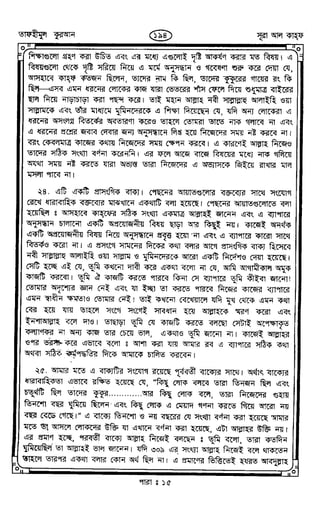 তাফহীমুল কুরআন
১৯৪
সূরা আল কাহফ
শিক্ষাগুলো গ্রহণ করা উচিত এবং এর মধ্যে এগুলোই দৃষ্টি আকর্ষণ করার মত বিষয়। এ
বিষয়গুলো থেকে দৃষ্টি সরিয়ে নিয়ে এ মর্মে অনুসন্ধান ও গবেষণা শুরু করে দেয়া যে,
আসহাবে কাহ্ফ কতজন ছিলেন, তাদের নাম কি ছিল, তাদের কুকুরের গায়ের রং কি
ছিল—এসব এমন ধরনের লোকের কাজ যারা ভেতরের শাঁস ফেলে দিয়ে শুধুমাত্র বাইরের
ছাল নিয়ে নাড়াচাড়া করা পছন্দ করে। তাই মহান আল্লাহ নবী সাল্লাল্লাহু আলাইহি ওয়া
সাল্লামকে এবং তাঁর মাধ্যমে মুমিনদেরকে এ শিক্ষা দিয়েছেন যে, যদি অন্য লোকেরা এ
ধরনের অসংলগ্ন বিতর্কের অবতারণা করেও তাহলে তোমরা তাতে নাক গলাবে না এবং
এ ধরনের প্রশ্নের জবাব দেবার জন্য অনুসন্ধানে লিপ্ত হয়ে নিজেদের সময় নষ্ট করবে না।
বরং কেবলমাত্র কাজের কথায় নিজেদের সময় ক্ষেপন করবে। এ কারণেই আল্লাহ নিজেও
তাদের সঠিক সংখ্যা বর্ণনা করেননি। এর ফলে আজে বাজে বিষয়ের মধ্যে নাক গলিয়ে
অযথা সময় নষ্ট করতে যারা অভ্যস্ত তারা নিজেদের এ অভ্যাসকে জিইয়ে রাখার মাল
মসলা পাবে না।
২৪. এটি একটি প্রাসংগিক বাক্য। পেছনের আয়াতগুলোর বক্তব্যের সাথে সংযোগ
রেখে ধারাবাহিক বক্তব্যের মাঝখানে একথাটি বলা হয়েছে। পেছনের আয়াতগুলোতে বলা
হয়েছিল ঃ আসহাবে কাহ্ফের সঠিক সংখ্যা একমাত্র আল্লাহই জানেন এবং এ ব্যাপারে
অনুসন্ধান চালানো একটি অপ্রয়োজনীয় বিষয় ছাড়া আর কিছুই নয়। কাজেই অনর্থক
একটি অপ্রয়োজনীয় বিষয় নিয়ে অনুসন্ধানে প্রবৃত্ত হয়ো না এবং এ ব্যাপারে কারো সাথে
বিতর্কও করো না। এ প্রসংগে সামনের দিকের কথা বলার আগে প্রাসংগিক বাক্য হিসেবে
নবী সাল্লাল্লাহু আলাইহি ওয়া সাল্লাম ও মুমিনদেরকে আরো একটি নির্দেশও দেয়া হয়েছে।
সেটি হচ্ছে এই যে, তুমি কখনো দাবী করে একথা বলো না যে, আমি আগামীকাল অমুক
কাজটি করবো। তুমি ঐ কাজটি করতে পারবে কিনা সে ব্যাপারে তুমি কীইবা জানো!
তোমার অদৃশ্যের জ্ঞান নেই এবং যা ইচ্ছা তা করতে পারবে নিজের কাজের ব্যাপারে
এমন স্বাধীন ক্ষমতাও তোমার নেই। তাই কখনো বেখেয়ালে যদি মুখ থেকে এমন কথা
বের হয়ে যায় তাহলে সংগে সংগেই সাবধান হয়ে আল্লাহকে স্মরণ করো এবং
ইনশাআল্লাহ বলে দাও। তাছাড়া তুমি যে কাজটি করতে বলছো সেটাই অপেক্ষাকৃত
কল্যাণকর না অন্য কাজ তার চেয়ে ভাল, একথাও তুমি জানো না। কাজেই আল্লাহর
ওপর ভরসা করে এভাবে বলো ঃ আশা করা যায় আমার রব এ ব্যাপারে সঠিক কথা
অথবা সঠিক কর্মপদ্ধতির দিকে আমাকে চালিত করবেন।
২৫. আমার মতে এ বাক্যটির সংযোগ রয়েছে পূর্ববর্তী বাক্যের সাথে। অর্থাৎ বাক্যের
ধারাবাহিকতা এভাবে রক্ষিত হয়েছে যে, "কিছু লোক বলবে তারা তিনজন ছিল এবং
চতুর্থটি ছিল তাদের কুকুর................ আর কিছু লোক বলে, তারা নিজেদের গুহায়
তিনশো বছর ঘুমিয়ে ছিলেন এবং কিছু লোক এ মেয়াদ গণনা করতে গিয়ে আরো নয়
বছর বেড়ে গেছে।" এ বাক্যে তিনশো ও নয় বছরের যে সংখ্যা বর্ণনা করা হয়েছে আমার
মতে তা আসলে লোকদের উক্তি যা এখানে বর্ণনা করা হয়েছে, এটা আল্লাহর উক্তি নয়।
এর প্রমাণ হচ্ছে, পরবর্তী বাক্যে আল্লাহ নিজেই বলছেন ঃ তুমি বলো, তারা কতদিন
ঘুমিয়েছিল তা আল্লাহই ভাল জানেন। যদি ৩০৯ এর সংখ্যা আল্লাহ নিজেই বলে থাকতেন
তাহলে তারপর একথা বলার কোন অর্থ ছিল না। এ প্রমাণের ভিত্তিতেই হযরত আবদুল্লাহ
পারা ঃ ১৫